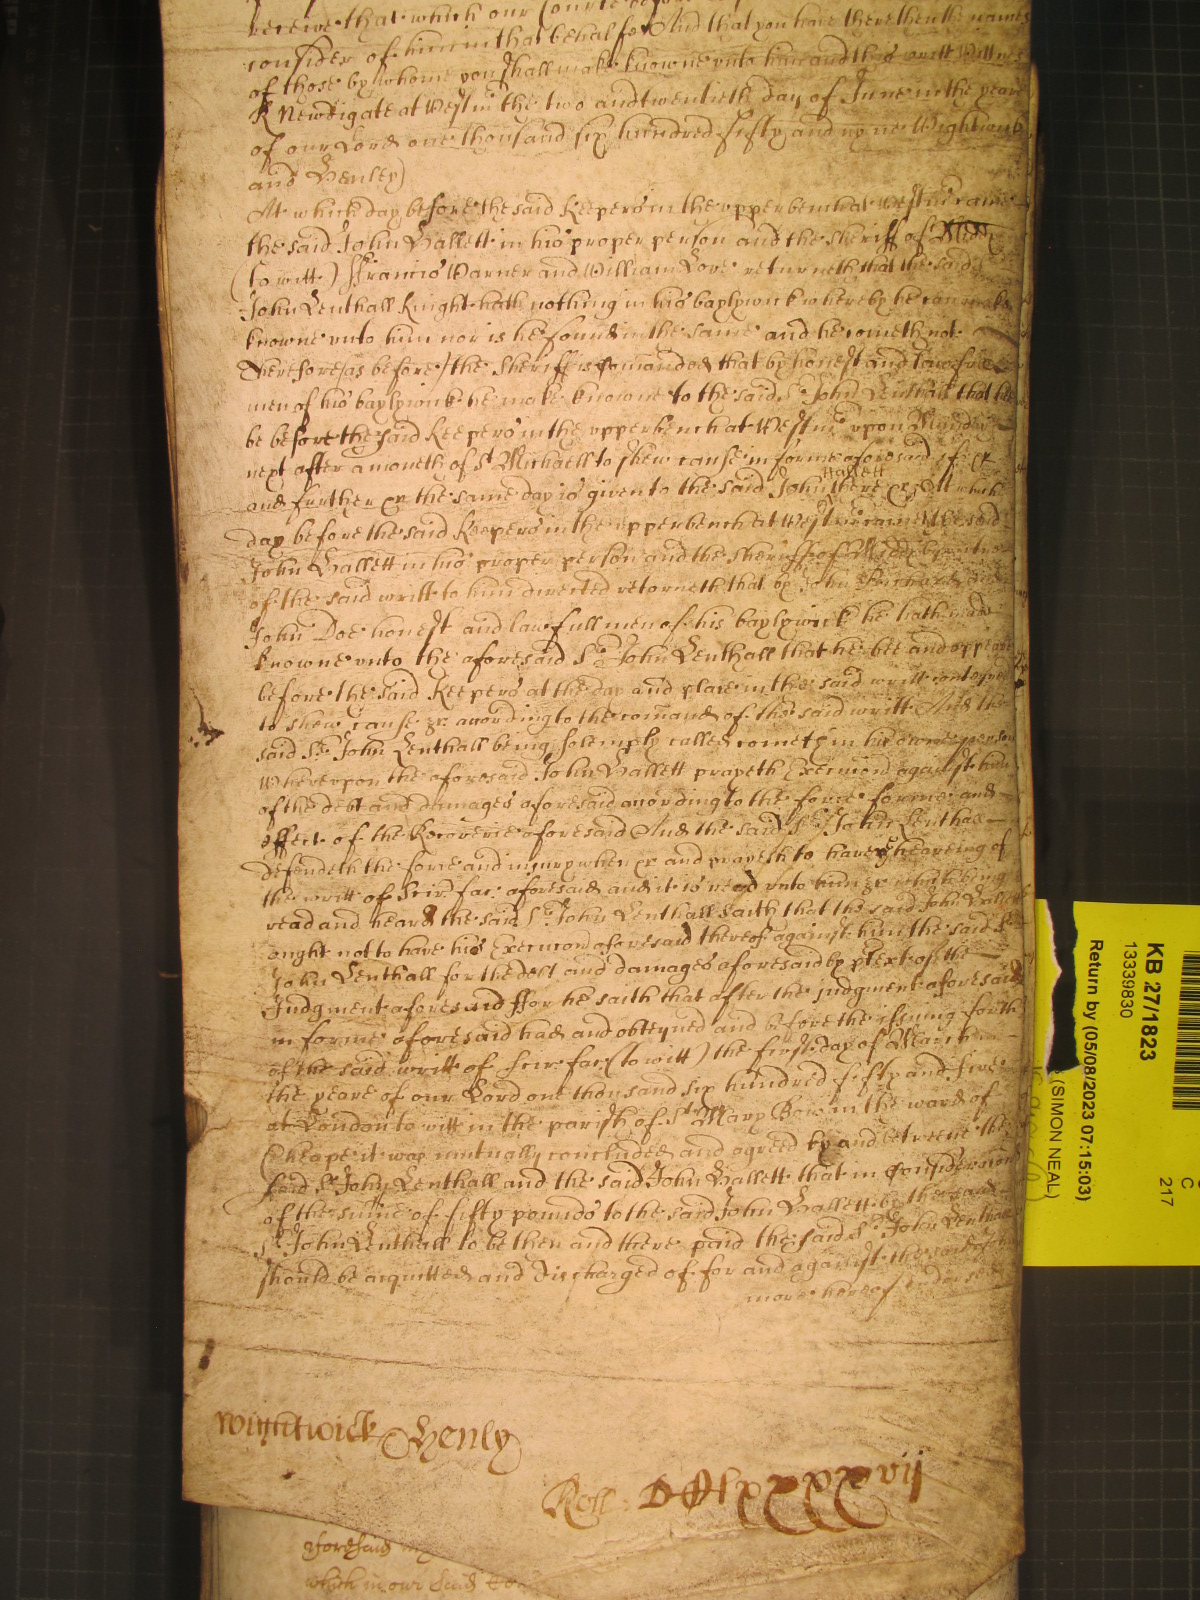 receive that which our Courte before
consider of him in that behalfe And that you have there then the names
of those by whome you shall make knowne unto him and this writt Wittnes
R Newdigate at Westm the two and twentieth day of June in the yeare
of our Lord one thousand six hundred fifty and nyne Wightwick
and Henley)
At which day before the said Keepers in the upper bench at Westm came
the said John Hallett in his proper person and the Sheriff of Midd
(to witt) Francis Warner and William Love returneth that the said
John Lenthall Knight hath nothing in his baylywick whereby he can make
knowne unto him nor is he found in the same and he cometh not
Therefore (as before) the Sheriff is comanded that by honest and lawfull
men of his baylywick he make knowne to the said Sr John Lenthall that he
be before the said Keepers in the upper bench at Westm upon Munday
next after a moneth of St Michaell to shew cause in forme aforesaid if &c
Hallett
and further &c the same day is given to the said John there &c At which
day before the said Keepers in the upper bench at Westm came the said
John Hallett in his proper person and the Sheriffe of Midd by vertue
of the said writt to him directed retorneth that by John and
John Doe honest and lawfull men of his baylywick he hath made
knowne unto the aforesaid Sr John Lenthall that he bee and appeare
before the said Keepers at the day and place in the said writt conteyned
to shew cause &c according to the comand of the said writt And the
said Sr John Lenthall being solemply called cometh in his owne person
Whereupon the aforesaid John Hallett prayeth Execucon against him
of the debt and damages aforesaid according to the force forme and
effect of the Recoverie aforesaid And the said Sr John Lenthall
defendeth the force and injury when &c and prayeth to have hearing of
the writt of Scir fac aforesaid and it is read unto him &c which being
read and heard the said Sr John Lenthall saith that the said John Hallett
ought not to have his Execucon aforesaid thereof against him the said Sr
John Lenthall for the debt and damages aforesaid by ptext of the
Judgment aforesaid ffor he saith that after the judgment aforesaid
in forme aforesaid had and obteyned and before the issuing forth
of the said writt of Scir fac (to witt) the first day of March in
the yeare of our Lord one thousand six hundred fifty and five
at London to witt in the parish of St Mary Bow in the ward of
Cheape it was mutually concluded and agreed by and betweene the
said Sr John Lenthall and the said John Hallett that in Consideracon
of the sume of fifty pounds to the said John Hallett by the said
Sr John Lenthall to be then and there paid the said Sr John Lenthall
should be acquitted and discharged of for and against the said John
more hereof endorsed
Wightwick Henley
Roll: DClxxxxvij
aforesaid
which in our said
KB 27/1823
13339830
Return by (05/08/2023 07:15:03)
(SIMON NEAL)
C
217